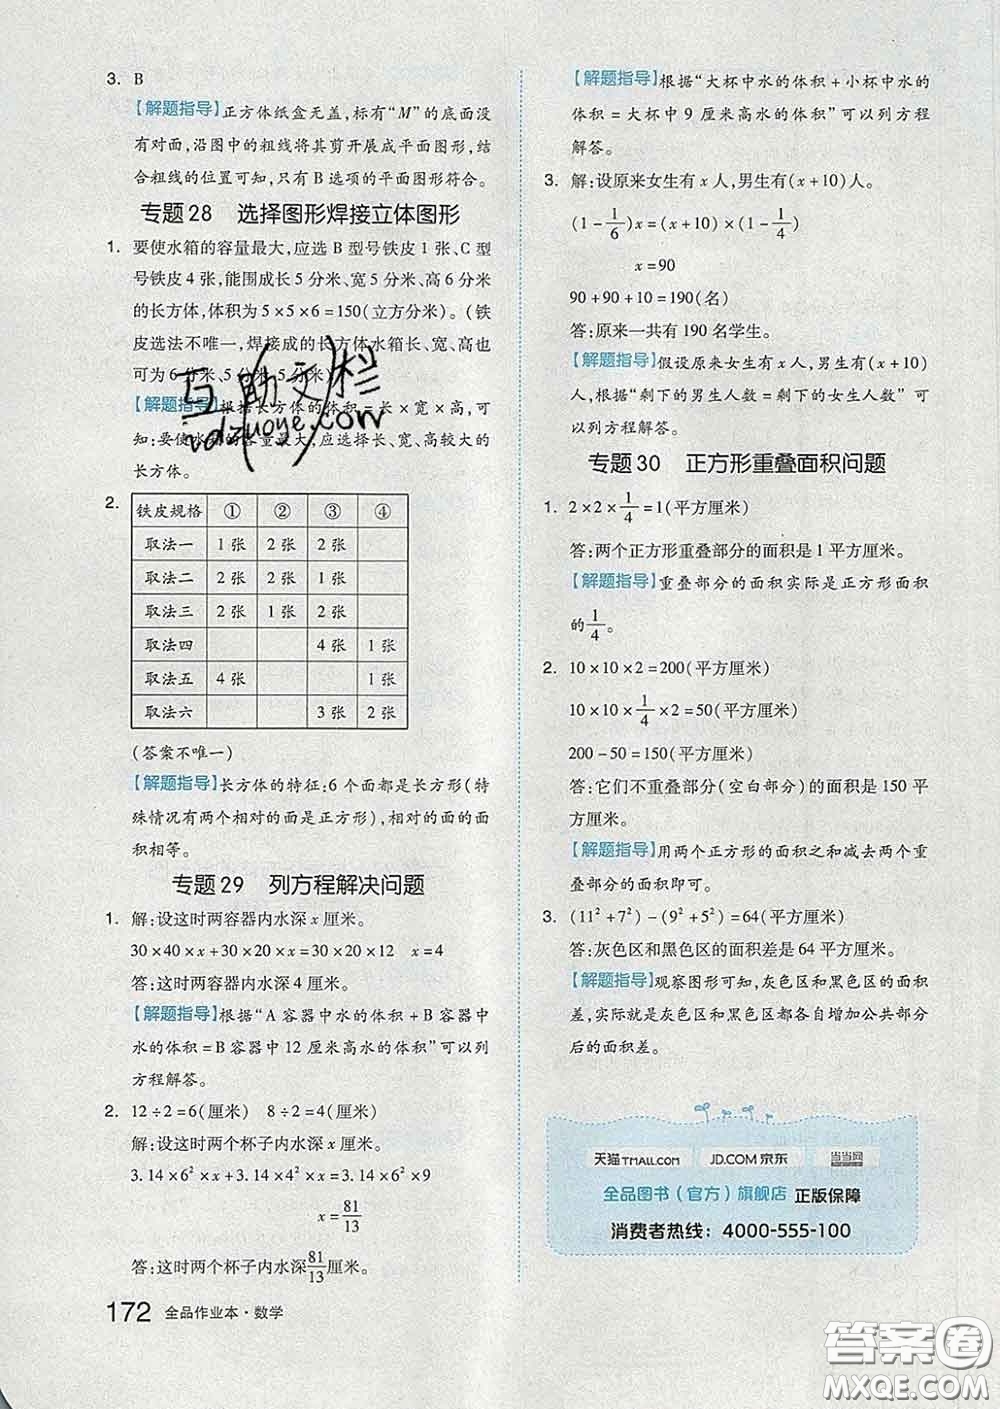 3. B
【解题指导】正方体纸盒无盖,标有“M”的底面没
有对面,沿图中的粗线将其剪开展成平面图形,结
合粗线的位置可知,只有 B 选项的平面图形符合。
专题28 选择图形焊接立体图形
1. 要使水箱的容量最大,应选 B 型号铁皮 1 张、C 型
号铁皮 4 张,能围成长 5 分米、宽 5 分米、高 6 分米
的长方体,体积为 5×5×6=150(立方分米)。(铁
皮选法不唯一,焊接成的长方体水箱长、宽、高也
可为 6 分米、5 分米、5 分米)
【解题指导】根据长方体的体积=长×宽×高,可
知:要使水箱的容量最大,应选择长、宽、高较大的
长方体。
2.
铁皮规格 ① ② ③ ④
取法一 1 张 2 张 2 张
取法二 2 张 2 张 1 张
取法三 2 张 1 张 2 张
取法四 4 张 1 张
取法五 4 张 1 张
取法六 3 张 2 张
(答案不唯一)
【解题指导】长方体的特征:6 个面都是长方形(特
殊情况有两个相对的面是正方形),相对的面的面
积相等。
专题29 列方程解决问题
1. 解:设这时两容器内水深 x 厘米。
30×40×x+30×20×x=30×20×12 x=4
答:这时两容器内水深 4 厘米。
【解题指导】根据“A 容器中水的体积+B 容器中
水的体积=B 容器中 12 厘米高水的体积”可以列
方程解答。
2. 12÷2=6(厘米) 8÷2=4(厘米)
解:设这时两个杯子内水深 x 厘米。
3.14×6²×x+3.14×4²×x=3.14×6²×9
x=81/13
答:这时两个杯子内水深81/13厘米。
172 全品作业本·数学
【解题指导】根据“大杯中水的体积+小杯中水的
体积=大杯中 9 厘米高水的体积”可以列方程
解答。
3. 解:设原来女生有 x 人,男生有(x+10)人。
(1-1/6)x=(x+10)×(1-1/4)
x=90
90+90+10=190(名)
答:原来一共有 190 名学生。
【解题指导】假设原来女生有 x 人,男生有(x+10)
人。根据“剩下的男生人数=剩下的女生人数”可
以列方程解答。
专题30 正方形重叠面积问题
1. 2×2×1/4=1(平方厘米)
答:两个正方形重叠部分的面积是 1 平方厘米。
【解题指导】重叠部分的面积实际是正方形面积
的1/4。
2. 10×10×2=200(平方厘米)
10×10×1/4×2=50(平方厘米)
200-50=150(平方厘米)
答:它们不重叠部分(空白部分)的面积是 150 平
方厘米。
【解题指导】用两个正方形的面积之和减去两个重
叠部分的面积即可。
3. (11²+7²)-(9²+5²)=64(平方厘米)
答:灰色区和黑色区的面积差是 64 平方厘米。
【解题指导】观察图形可知,灰色区和黑色区的面积
差,实际就是灰色区和黑色区都各自增加公共部分
后的面积差。
天猫TMALL.COM JD.COM 京东 当当网
全品图书(官方)旗舰店 正版保障
消费者热线:4000-555-100
互助文栏
答案圈
MXQE.COM